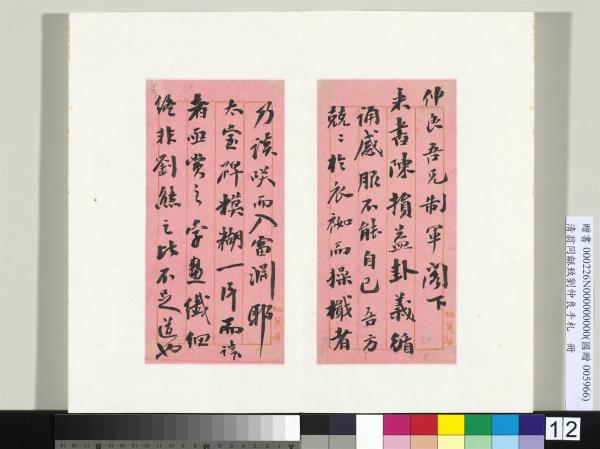 仲良吾兄制軍閣下
來書陳損益卦義循
誦感服不能自已吾方
兢〻於衣袽而操檝者
乃談咲而入雷淵耶
太室碑模糊一片而
者亟賞之字畫纖細
終非劉熊之比不足道也
贈書 000226N000000000(國贈 005966)
清翁同龢致劉仲良手札 冊
12